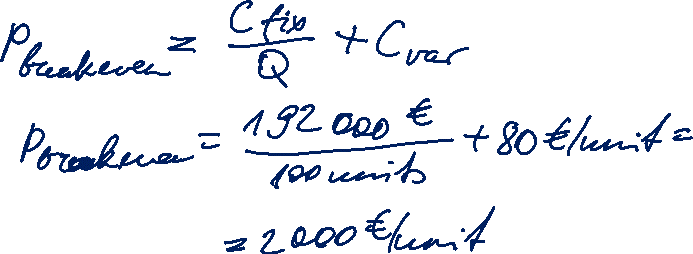 P breakeven = C fix / Q + C var
P breakeven = 192 000 € / 100 units + 80 €/unit =
= 2000 €/unit